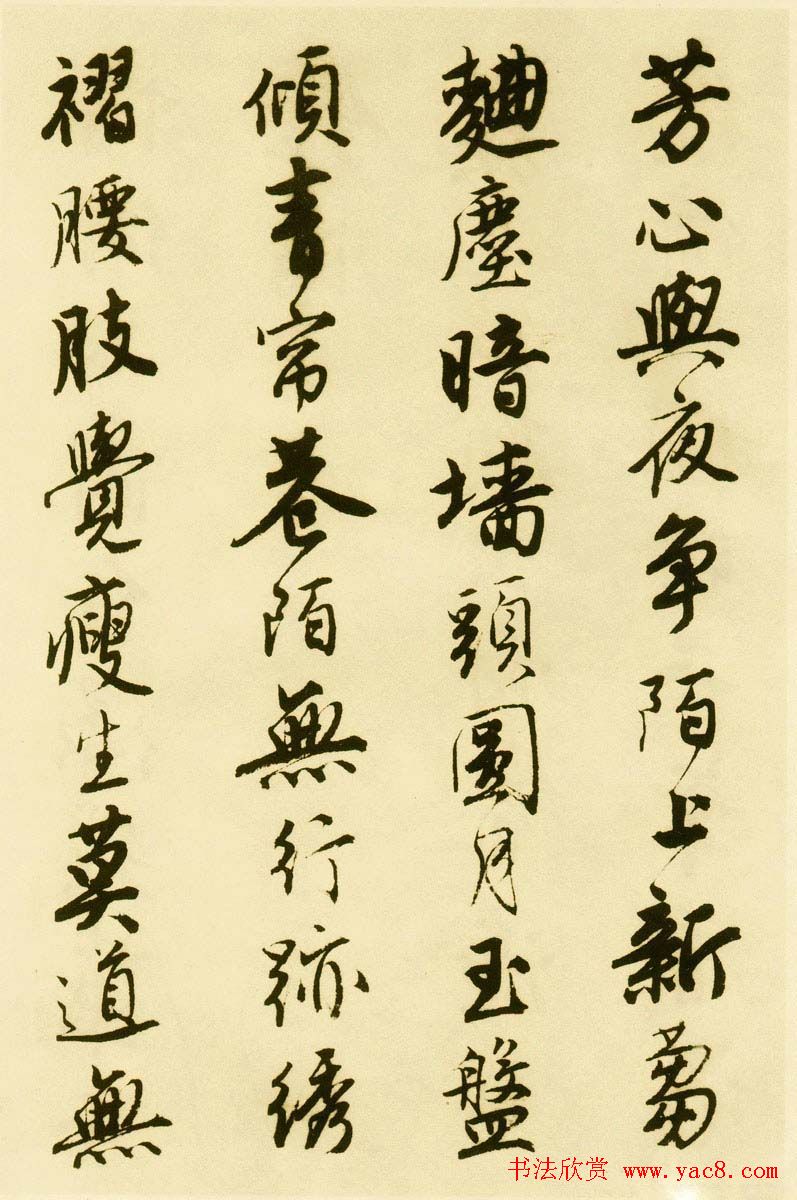 芳心與夜争陌上新蒭
麯塵暗墙頭圓月玉盤
傾青帘巷陌無行跡綉
褶腰肢覺瘦生莫道無
书法欣赏 www.yac8.com